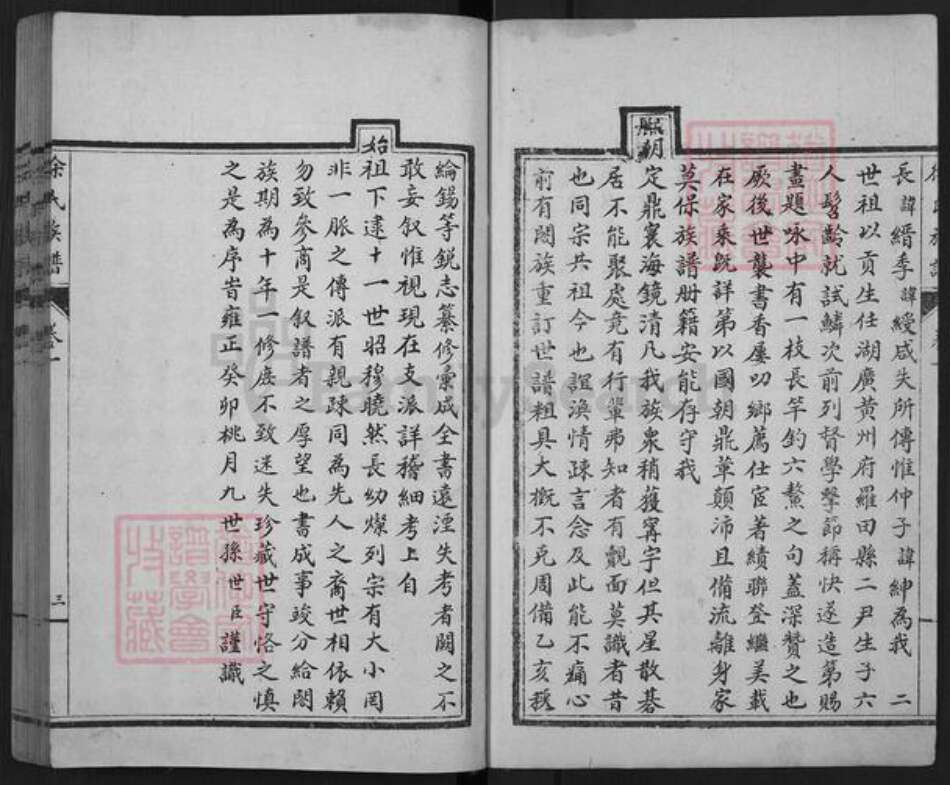 長諱縉季諱綬咸失所傳惟仲子諱紳為我 二
世祖以貢生任湖廣黃州府羅田縣二尹生子六
人髫齡就試鱗次前列督學擊節稱快遂造第賜
畫題咏中有一枝長竿釣六鰲之句蓋深贊之也
厥後世襲書香屢叨鄉薦仕宦著績聯登繼美載
在家乘既詳第以國朝鼎革顛沛且備流離身家
莫保族譜册籍安能存守我
熙朝
定鼎襄海鏡清凡我族衆稍獲寧宇但其星散碁
居不能聚處竟有行輩弗知者有覿面莫識者昔
也同宗共祖今也誼渙情疎言念及此能不痛心
前有闔族重訂世譜粗具大概不克周備乙亥秋
綸錫等銳志纂修彙成全書遠湮失考者闕之不
敢妄叙惟視現在支派詳稽細考上自
始
祖下逮十一世昭穆曉然長幼燦列宗有大小罔
非一脈之傳派有親疎同為先人之裔世相依賴
勿致參商是叙譜者之厚望也書成事竣分給閤
族期為十年一修庶不致迷失珍藏世守恪之慎
之是為序旹雍正癸卯桃月九世孫世臣謹識
徐氏族譜 卷一 三
FamilySearch